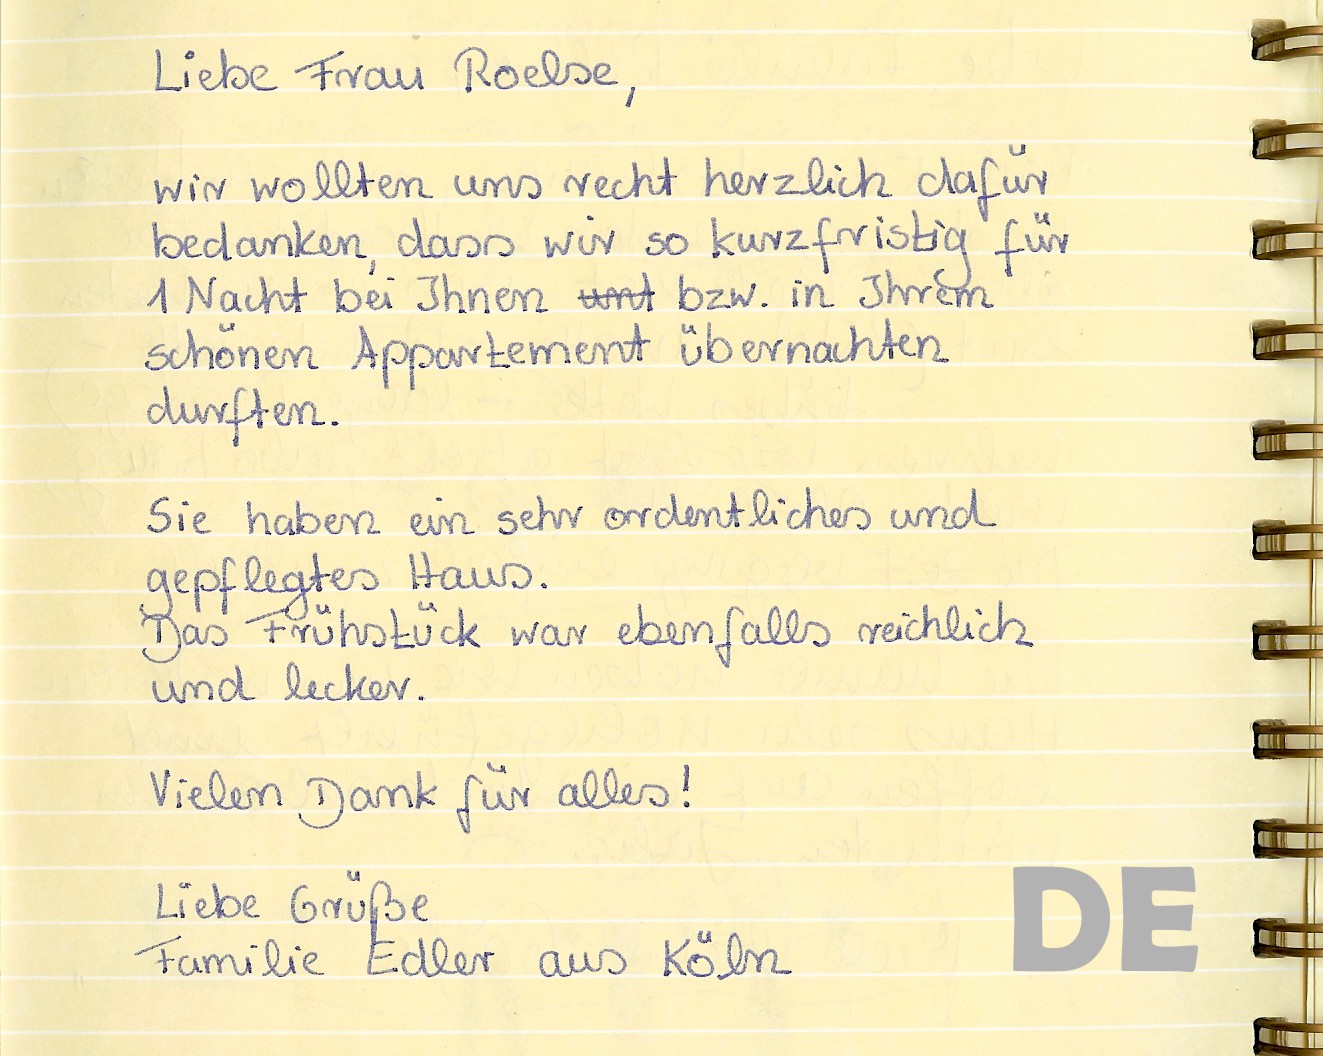 Liebe Frau Roelse,
wir wollten uns recht herzlich dafür
bedanken, dass wir so kurzfristig für
1 Nacht bei Ihnen bzw. in Ihrem
schönen Appartement übernachten
durften.
Sie haben ein sehr ordentliches und
gepflegtes Haus.
Das Frühstück war ebenfalls reichlich
und lecker.
Vielen Dank für alles!
Liebe Grüße
Familie Edler aus Köln
DE